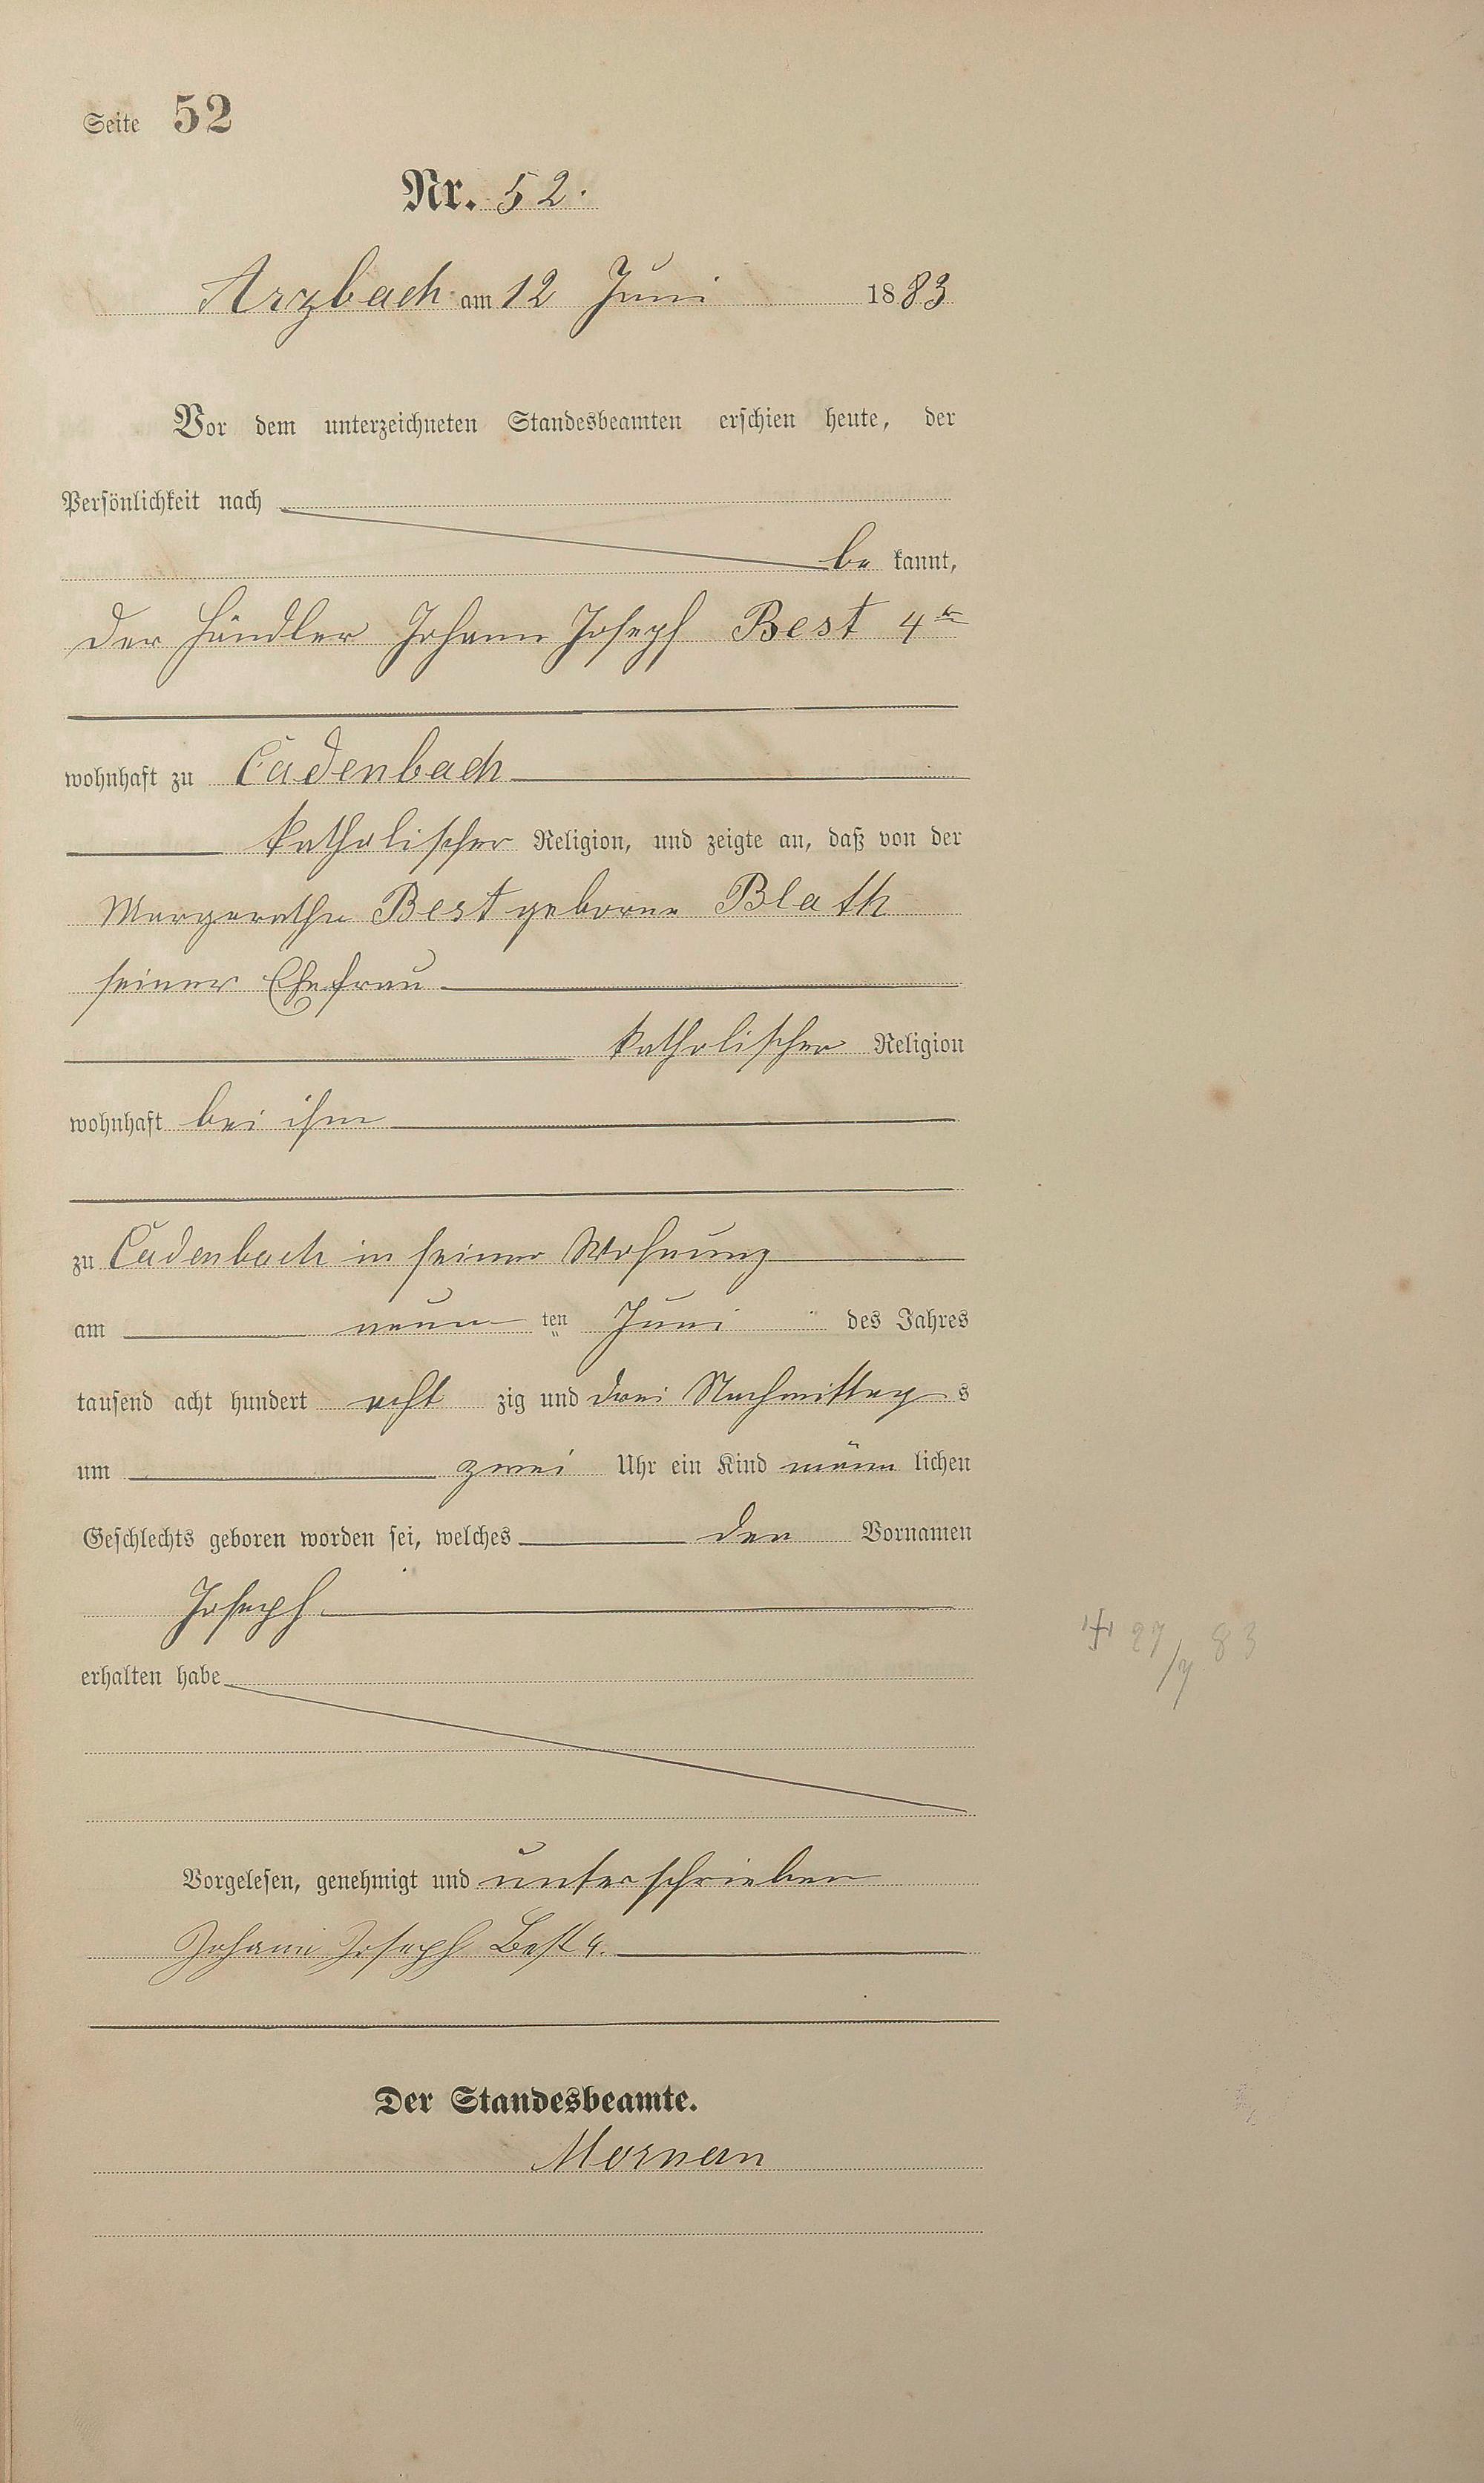 Seite 52
Nr. 52.
Arzbach am 12 Juni 1883
Vor dem unterzeichneten Standesbeamten erschien heute, der
Persönlichkeit nach
be kannt,
der Händler Johann Joseph Best 4te
wohnhaft zu Cadenbach
katholischer Religion, und zeigte an, daß von der
Margarethe Best geborne Blath
seiner Ehefrau
katholischer Religion
wohnhaft bei ihm
zu Cadenbach in seiner Wohnung
am neun ten Juni des Jahres
tausend acht hundert acht zig und drei Nachmittag s
um zwei Uhr ein Kind männ lichen
Geschlechts geboren worden sei, welches den Vornamen
Joseph
erhalten habe
† 27/7 83
Vorgelesen, genehmigt und unterschrieben
Johann Joseph Best 4.
Der Standesbeamte.